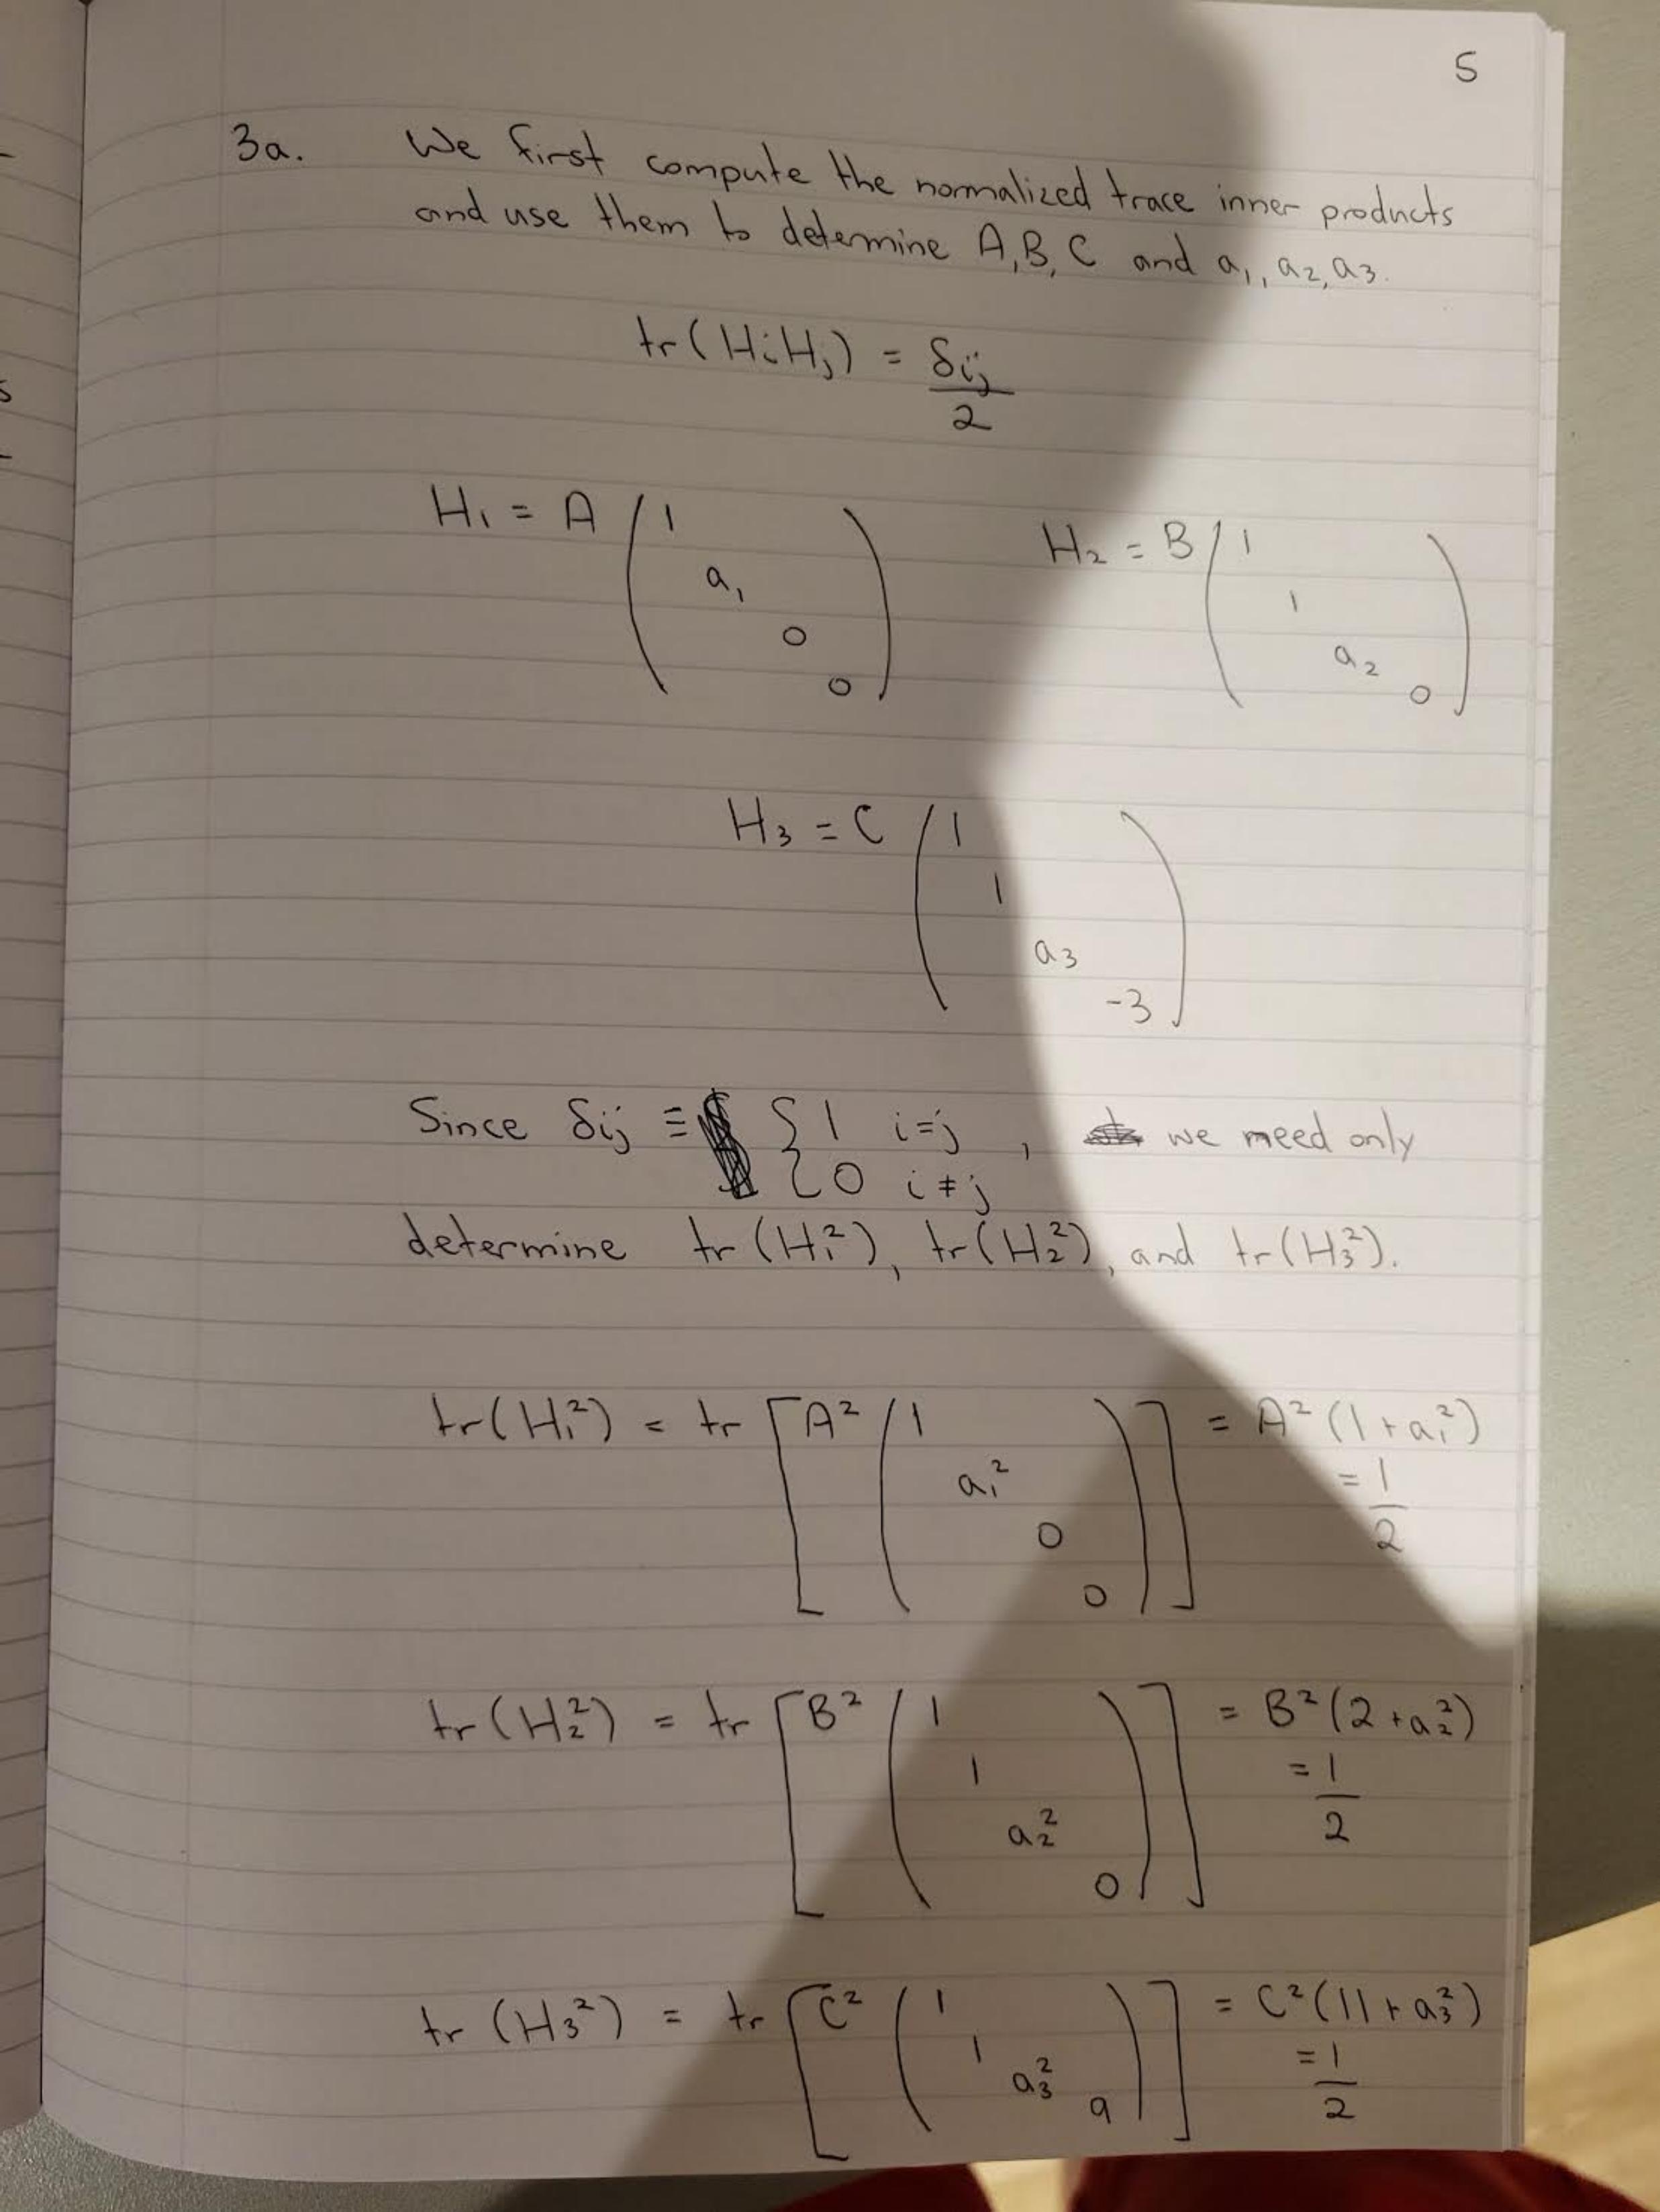 5
3a. We first compute the normalized trace inner products
and use them to determine A, B, C and a₁, a₂, a₃.
tr(HiHj) = δij
2
H₁ = A ( 1
a₁
0
0 )
H₂ = B ( 1
1
a₂
0 )
H₃ = C ( 1
1
a₃
-3 )
Since δij ≡ { 1 i=j , we need only
{ 0 i≠j
determine tr(H₁²), tr(H₂²), and tr(H₃²).
tr(H₁²) = tr [ A² ( 1 ) ] = A²(1+a₁²)
a₁² = 1
0 2
0
tr(H₂²) = tr [ B² ( 1 ) ] = B²(2+a₂²)
1 = 1
a₂² 2
0
tr(H₃²) = tr [ C² ( 1 ) ] = C²(11+a₃²)
1 = 1
a₃² 9 2